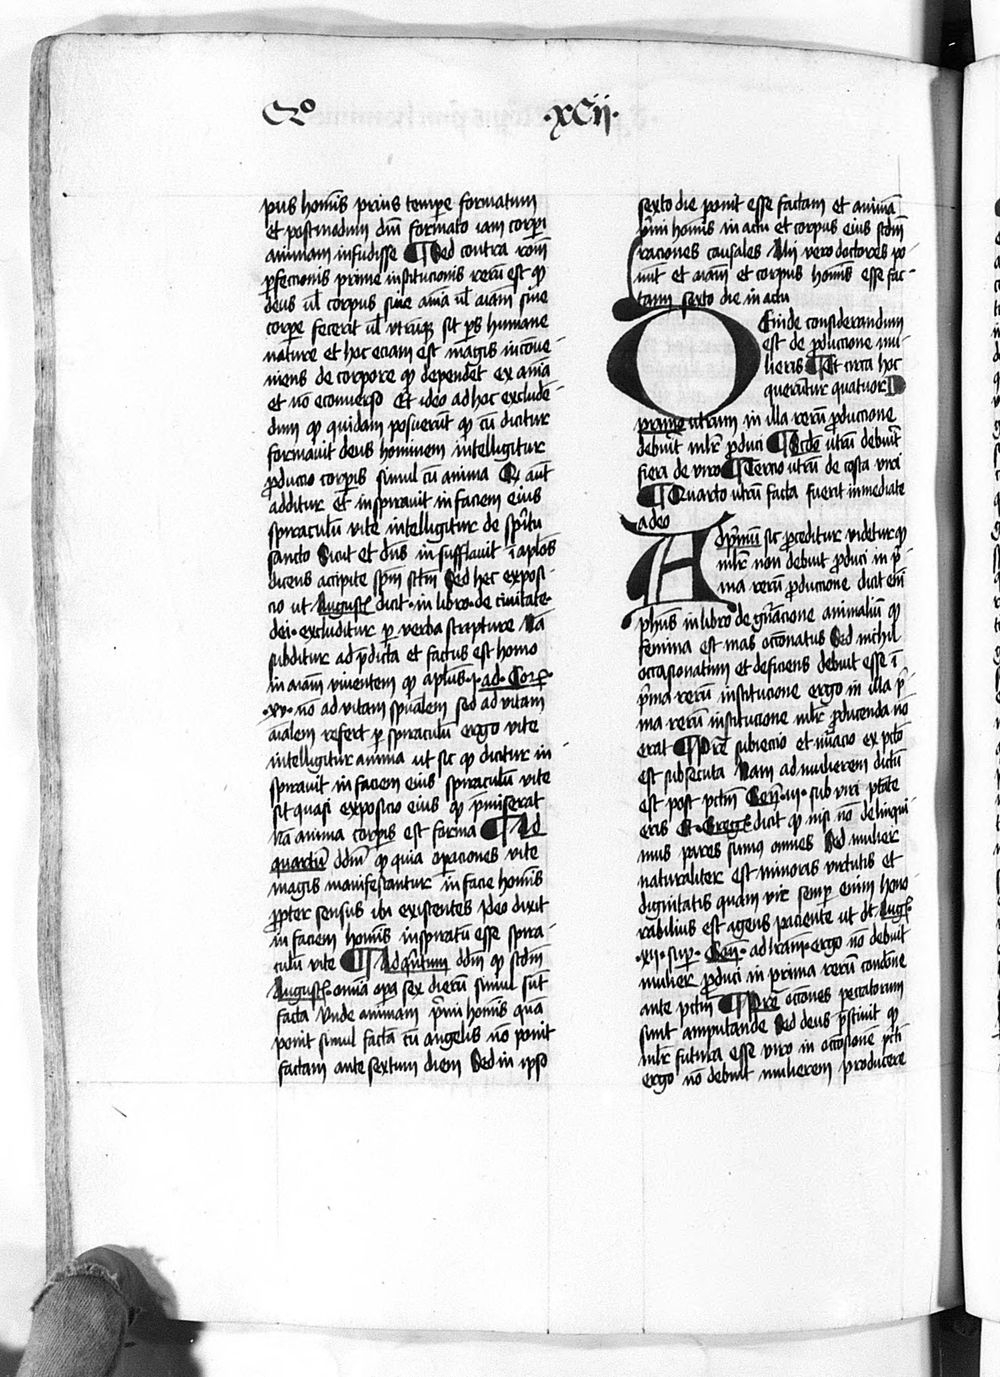 Qo .xcij.
pus homīs prius tempe formatum
et postmodum dm̄ formato iam corpi
animam infudisse ¶ Sed contra rōm
pfectionis prime institucionis rerū est qp
deus ul corpus sine aīa ul aīam sine
corpe fecerit ul utrūqz sit ps humane
nature et hoc eciam est magis incōue
niens de corpore qp dependet ex aīa
et nō econuerso Et ideo ad hoc exclude
dum qp quidam posuerūt qp cū dicitur
formauit deus hominem intelligitur
pduccio corpis simul cū anima Qp aūt
additur et inspirauit in faciem eius
spiraculū vite intelligitur de spūtu
sancto Sicut et dn̄s insufflauit ī aplos
dicens accipite spm̄ sctm̄ Sed hec exposi-
cio ut Augustꝰ dicit· in libro· de ciuitate·
dei· excluditur p verba scripture Nā
subditur ad pdicta et factus est homo
in aīam viuentem qp aplus· i· ad· Cor·
·xv· nō ad vitam spūalem sed ad vitam
aīalem refert p spiraculū ergo vite
intelligitur anima ut sic qp dicitur in
spirauit in faciem eius spiraculū vite
sit quasi exposicio eius qp pmiserat
nā anima corpis est forma ¶ Ad
quartū ddm̄ qp quia opaciones vite
magis manifestantur in facie homīs
ppter sensus ibi existentes Ideo dixit
in faciem homīs inspiratū esse spira-
culū vite ¶ Ad qͥntum ddm̄ qp scdm̄
Augustꝰ· omīa opa sex dierū simul sūt
facta Vnde animam pͥmi homīs quā
ponit simul factā cū angelis nō ponit
factam ante sextum diem Sed in ipso
sexto die ponit esse factam et animā
pͥmi homīs in actu et corpus eius scdm̄
raciones causales Alii vero doctores po-
nūt et aīam et corpus homīs esse fac-
tam sexto die in actu
Deinde considerandum
est de pduccione mu-
lieris ¶ Et circa hoc
querūtur quatuor
primo utrum in illa rerū pduccione
debuit mlr̄ pduci ¶ Scdo utrū debuīt
fieri de viro ¶ Tercio utrū de costa viri
¶ Quarto utrū facta fuerit inmediate
a deo
Ad pͥmū sic pceditur videtur qp
mlr̄ non debuit pduci in pͥ
ma rerū pduccione dicit enī
phūs in libro de gn̄acione animaliū qp
femina est mas occōnatus Sed nichil
occasionatum et deficiens debuit esse ī
pͥma rerū institucione ergo in illa pͥ
ma rerū institucione mlr̄ pducenda nō
erat ¶ Pret̄ subiectio et mīoracio ex pctō
est subsecuta Nam ad mulierem dictū
est post pctm̄ Gen̄·iii· sub viri ptāte
eris Et· Gregꝰ dicit qp ubi nō delinqui-
mus pares sumꝰ omnes Sed mulier
naturaliter est minoris virtutis et
dignitatis quam vir semp enim hono
rabilius est agens paciente ut dt Augꝰ
·xii· sup· Gen̄· ad lr̄am· ergo nō debuit
mulier pduci in prima rerū condōne
ante pctm̄ ¶ Pret̄ occōnes peccatorum
sunt amputande Sed deus pͥsciuit qp
mlr̄ futura esse viro in occōsionē pctī
ergo nō debuit mulierem producere